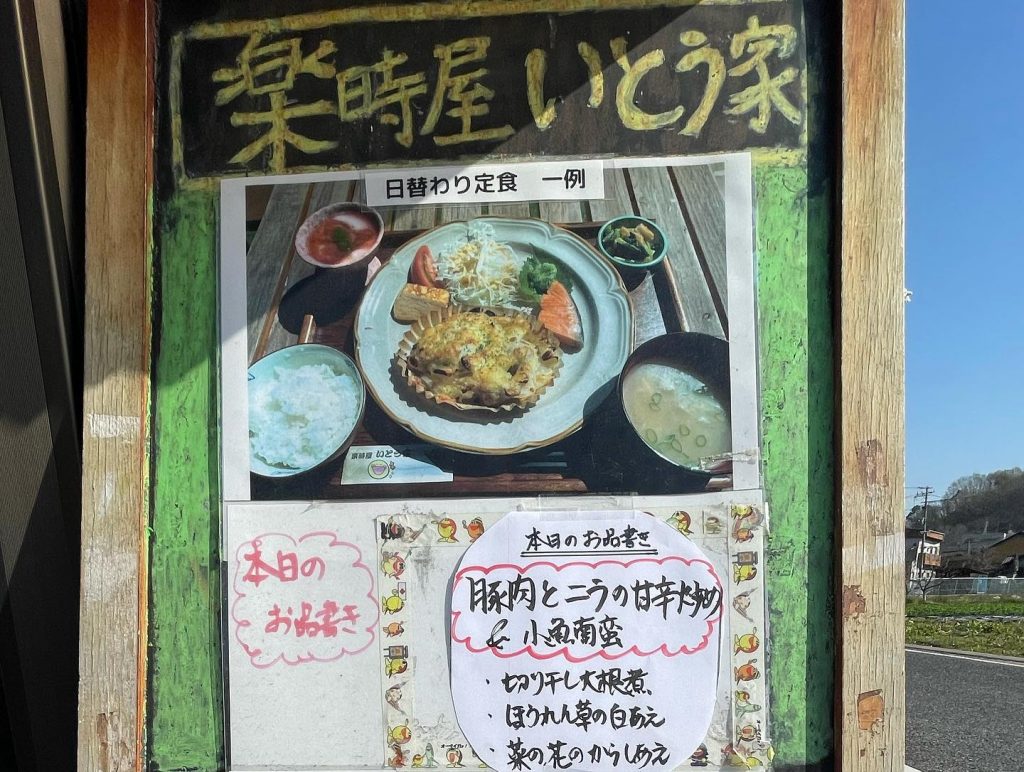 楽時屋 いとう家
日替わり定食 一例
楽時屋 いとう家
本日の
お品書き
本日のお品書き
豚肉とニラの甘辛炒め
& 小魚南蛮
・切り干し大根煮
・ほうれん草の白あえ
・菜の花のからしあえ